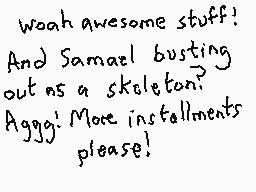 woah awesome stuff!
And Samael busting
out as a skeleton?
Aggg! More installments
please!